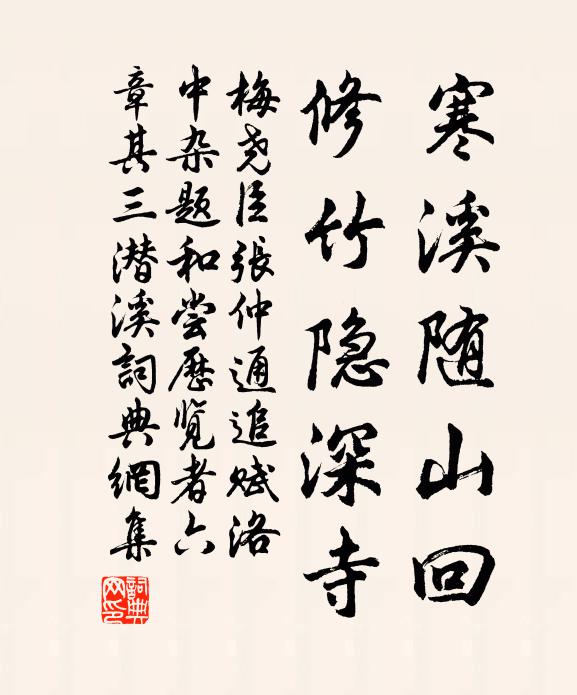 寒溪随山回
修竹隐深寺
梅尧臣張仲通追赋洛
中杂题和尝歷览者六
章其三潜溪詞典網集
詞典网印